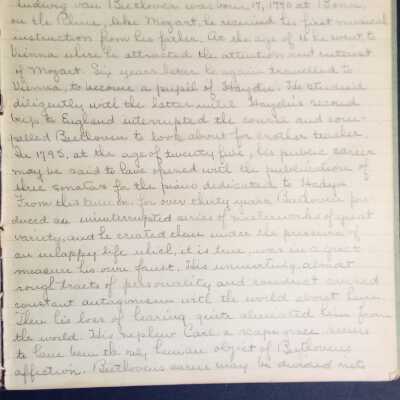 Ludwig van Beethoven was born 17, 1770 at Bonn,
on the Rhine, like Mozart, he received his first musical
instruction from his father. At the age of 16 he went to
Vienna where he attracted the attention and interest
of Mozart. Six years later he again travelled to
Vienna, to become a pupil of Haydn. He studied
diligently with the latter until Haydn's second
trip to England interrupted the course and com-
pelled Beethoven to look about for another teacher.
In 1795, at the age of twenty five, his public career
may be said to have opened with the publication of
three sonatas for the piano dedicated to Haydn.
From this time on for over thirty years Beethoven pro-
duced an uninterrupted series of masterworks of great
variety, and he created them under the pressure of
an unhappy life which, it is true was in a great
measure his own fault. His unremitting, almost
rough traits of personality and conduct
constant antagonism with the world about him.
Then his loss of hearing quite alienated him from
the world. His nephew Carl a scape grace, seems
to have been the only human object of Beethovens
affection. Beethovens career may be divided into